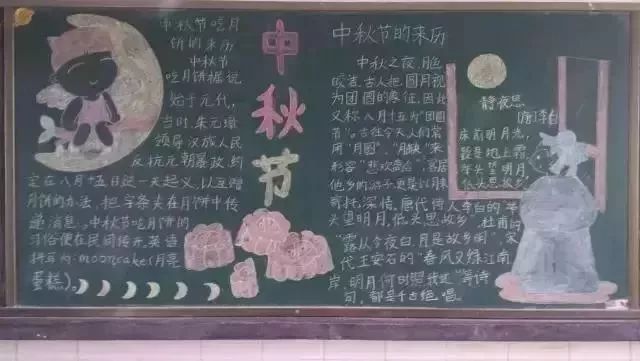 中秋节吃月
饼的来历
中秋节
吃月饼据说
始于元代，
当时，朱元璋
领导汉族人民
反抗元朝暴政，约
定在八月十五日这一天起义，以互赠
月饼的办法，把字条夹在月饼中传
递消息。中秋节吃月饼的
习俗便在民间传开，英语
拼写为:mooncake(月亮
蛋糕)。
中
秋
节
中秋节的来历
中秋之夜，月色
皎洁，古人把圆月视
为团圆的象征，因此，
又称八月十五为“团圆
节”。古往今天，人们常
用“月圆”、“月缺”来
形容“悲欢离合”，客居
他乡的游子，更是以月来
寄托深情。唐代诗人李白的“举
头望明月，低头思故乡”，杜甫的
“露从今夜白，月是故乡明”，宋
代王安石的“春风又绿江南
岸，明月何时照我还”等诗
句，都是千古绝唱。
静夜思
[唐]李白
床前明月光，
疑是地上霜。
举头望明月，
低头思故乡。